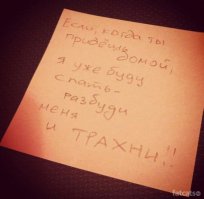 Если, когда ты
придёшь домой,
я уже буду
спать-
разбуди
меня
и ТРАХНИ!!
fatcats®